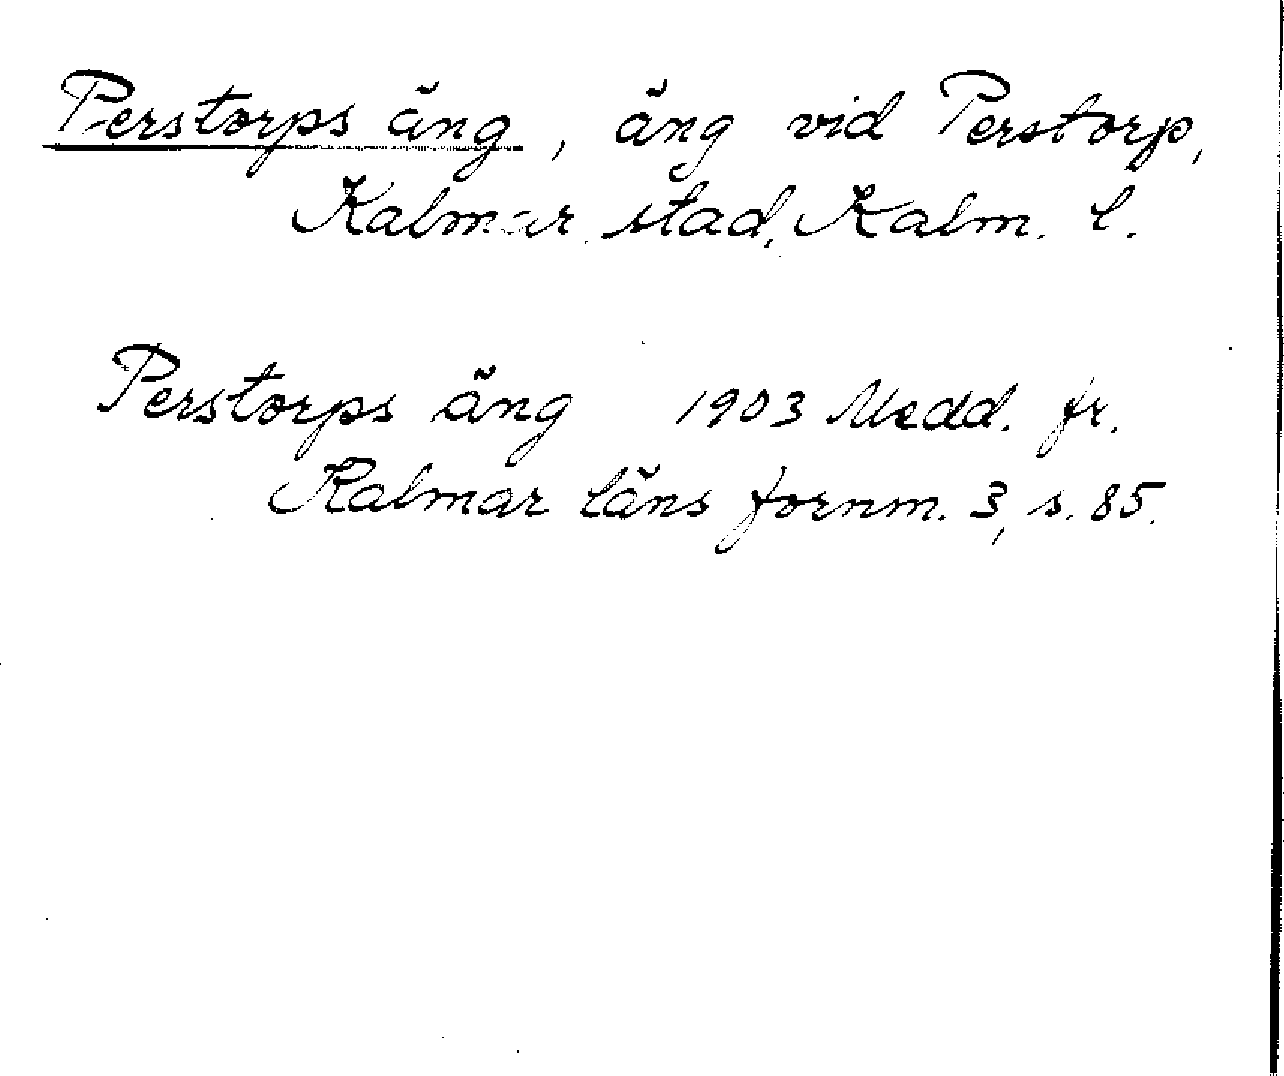 Perstorps äng, äng vid Perstorp,
Kalmar stad, Kalm. l.
Perstorps äng 1903 Medd. fr.
Kalmar läns fornm. 3, s. 85.